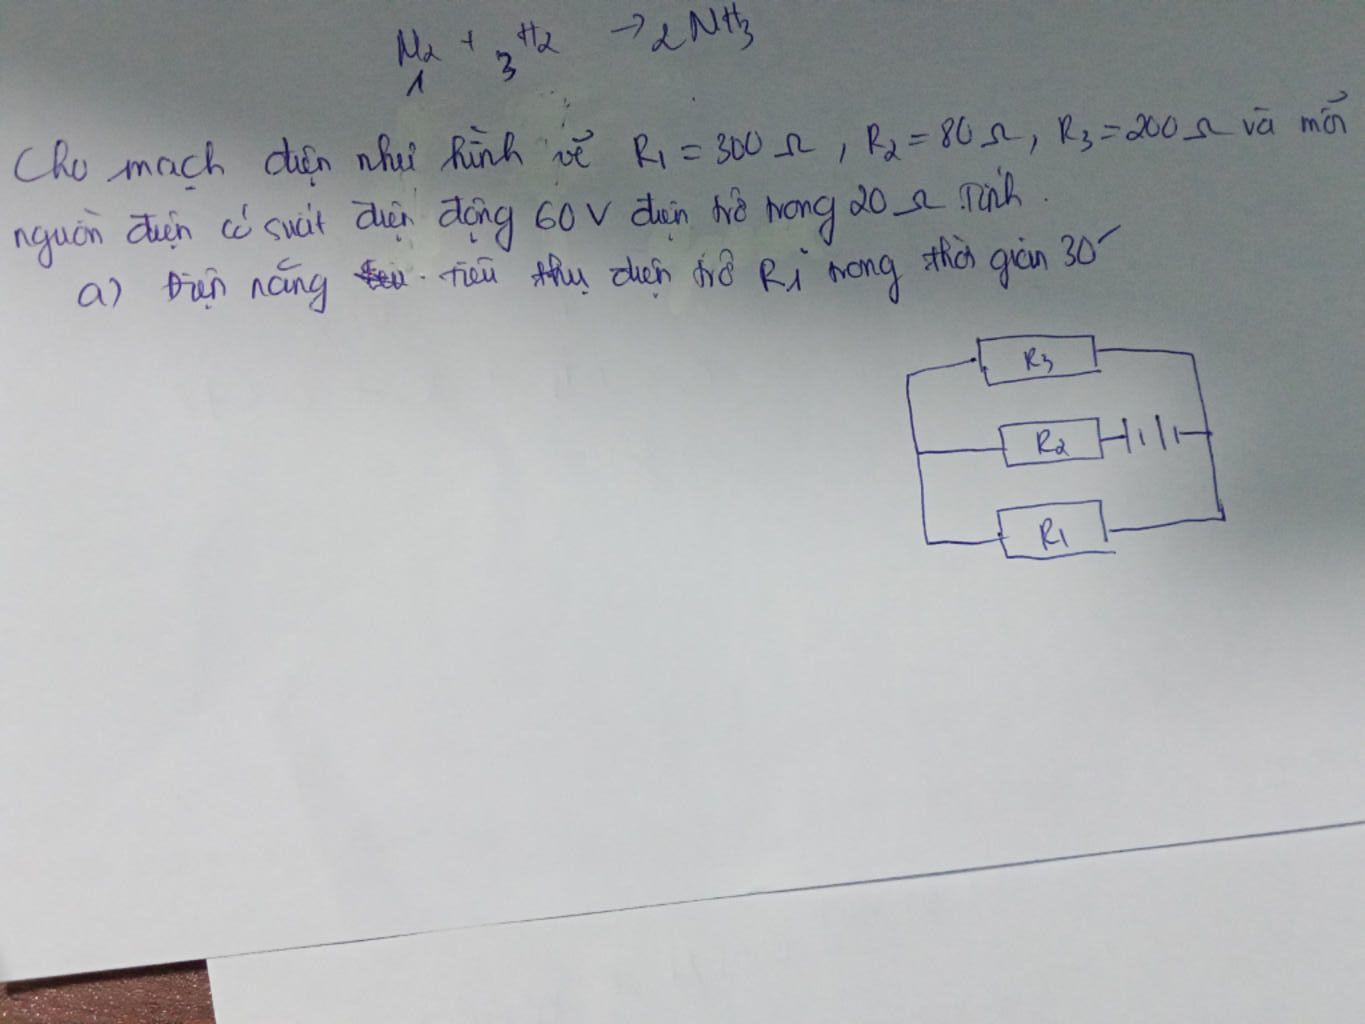 N2 + 3H2 → 2NH3
1
Cho mạch điện như hình vẽ R1 = 300 Ω , R2 = 80 Ω , R3 = 200 Ω và mỗi
nguồn điện có suất điện động 60 V điện trở trong 20 Ω Tính .
a) Điện năng tiêu thụ điện trở R1 trong thời gian 30'
R3
R2
R1